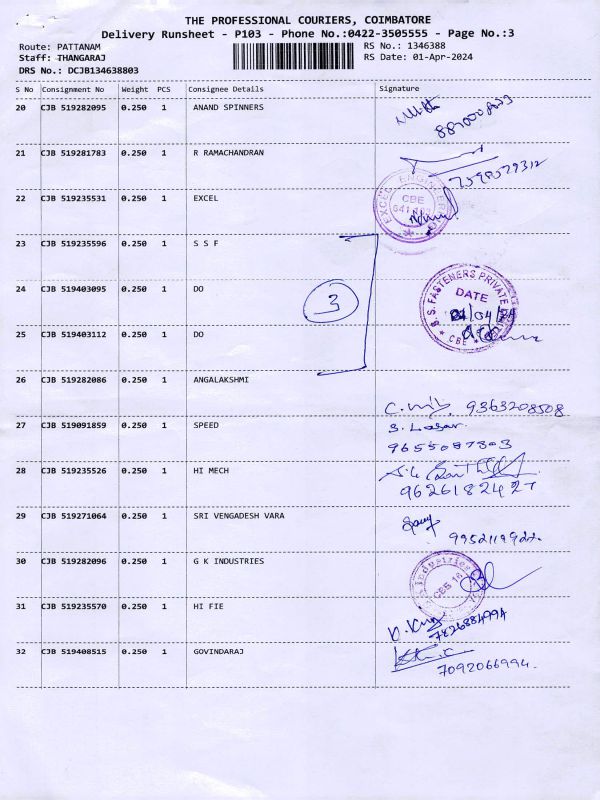 THE PROFESSIONAL COURIERS, COIMBATORE
Delivery Runsheet - P103 - Phone No.:0422-3505555 - Page No.:3
Route: PATTANAM
RS No.: 1346388
Staff: THANGARAJ
RS Date: 01-Apr-2024
DRS No.: DCJB134638803
S No Consignment No Weight PCS Consignee Details Signature
20 CJB 519282095 0.250 1 ANAND SPINNERS
21 CJB 519281783 0.250 1 R RAMACHANDRAN
22 CJB 519235531 0.250 1 EXCEL
EXCEL ENGINEERS
CBE
23 CJB 519235596 0.250 1 S S F
24 CJB 519403095 0.250 1 DO
3
S. FASTENERS PRIVATE
DATE
01/04/24
CBE
25 CJB 519403112 0.250 1 DO
26 CJB 519282086 0.250 1 ANGALAKSHMI
9363208508
27 CJB 519091859 0.250 1 SPEED
9655087303
28 CJB 519235526 0.250 1 HI MECH
9626182427
29 CJB 519271064 0.250 1 SRI VENGADESH VARA
30 CJB 519282096 0.250 1 G K INDUSTRIES
Industries
31 CJB 519235570 0.250 1 HI FIE
32 CJB 519408515 0.250 1 GOVINDARAJ
7092066994.